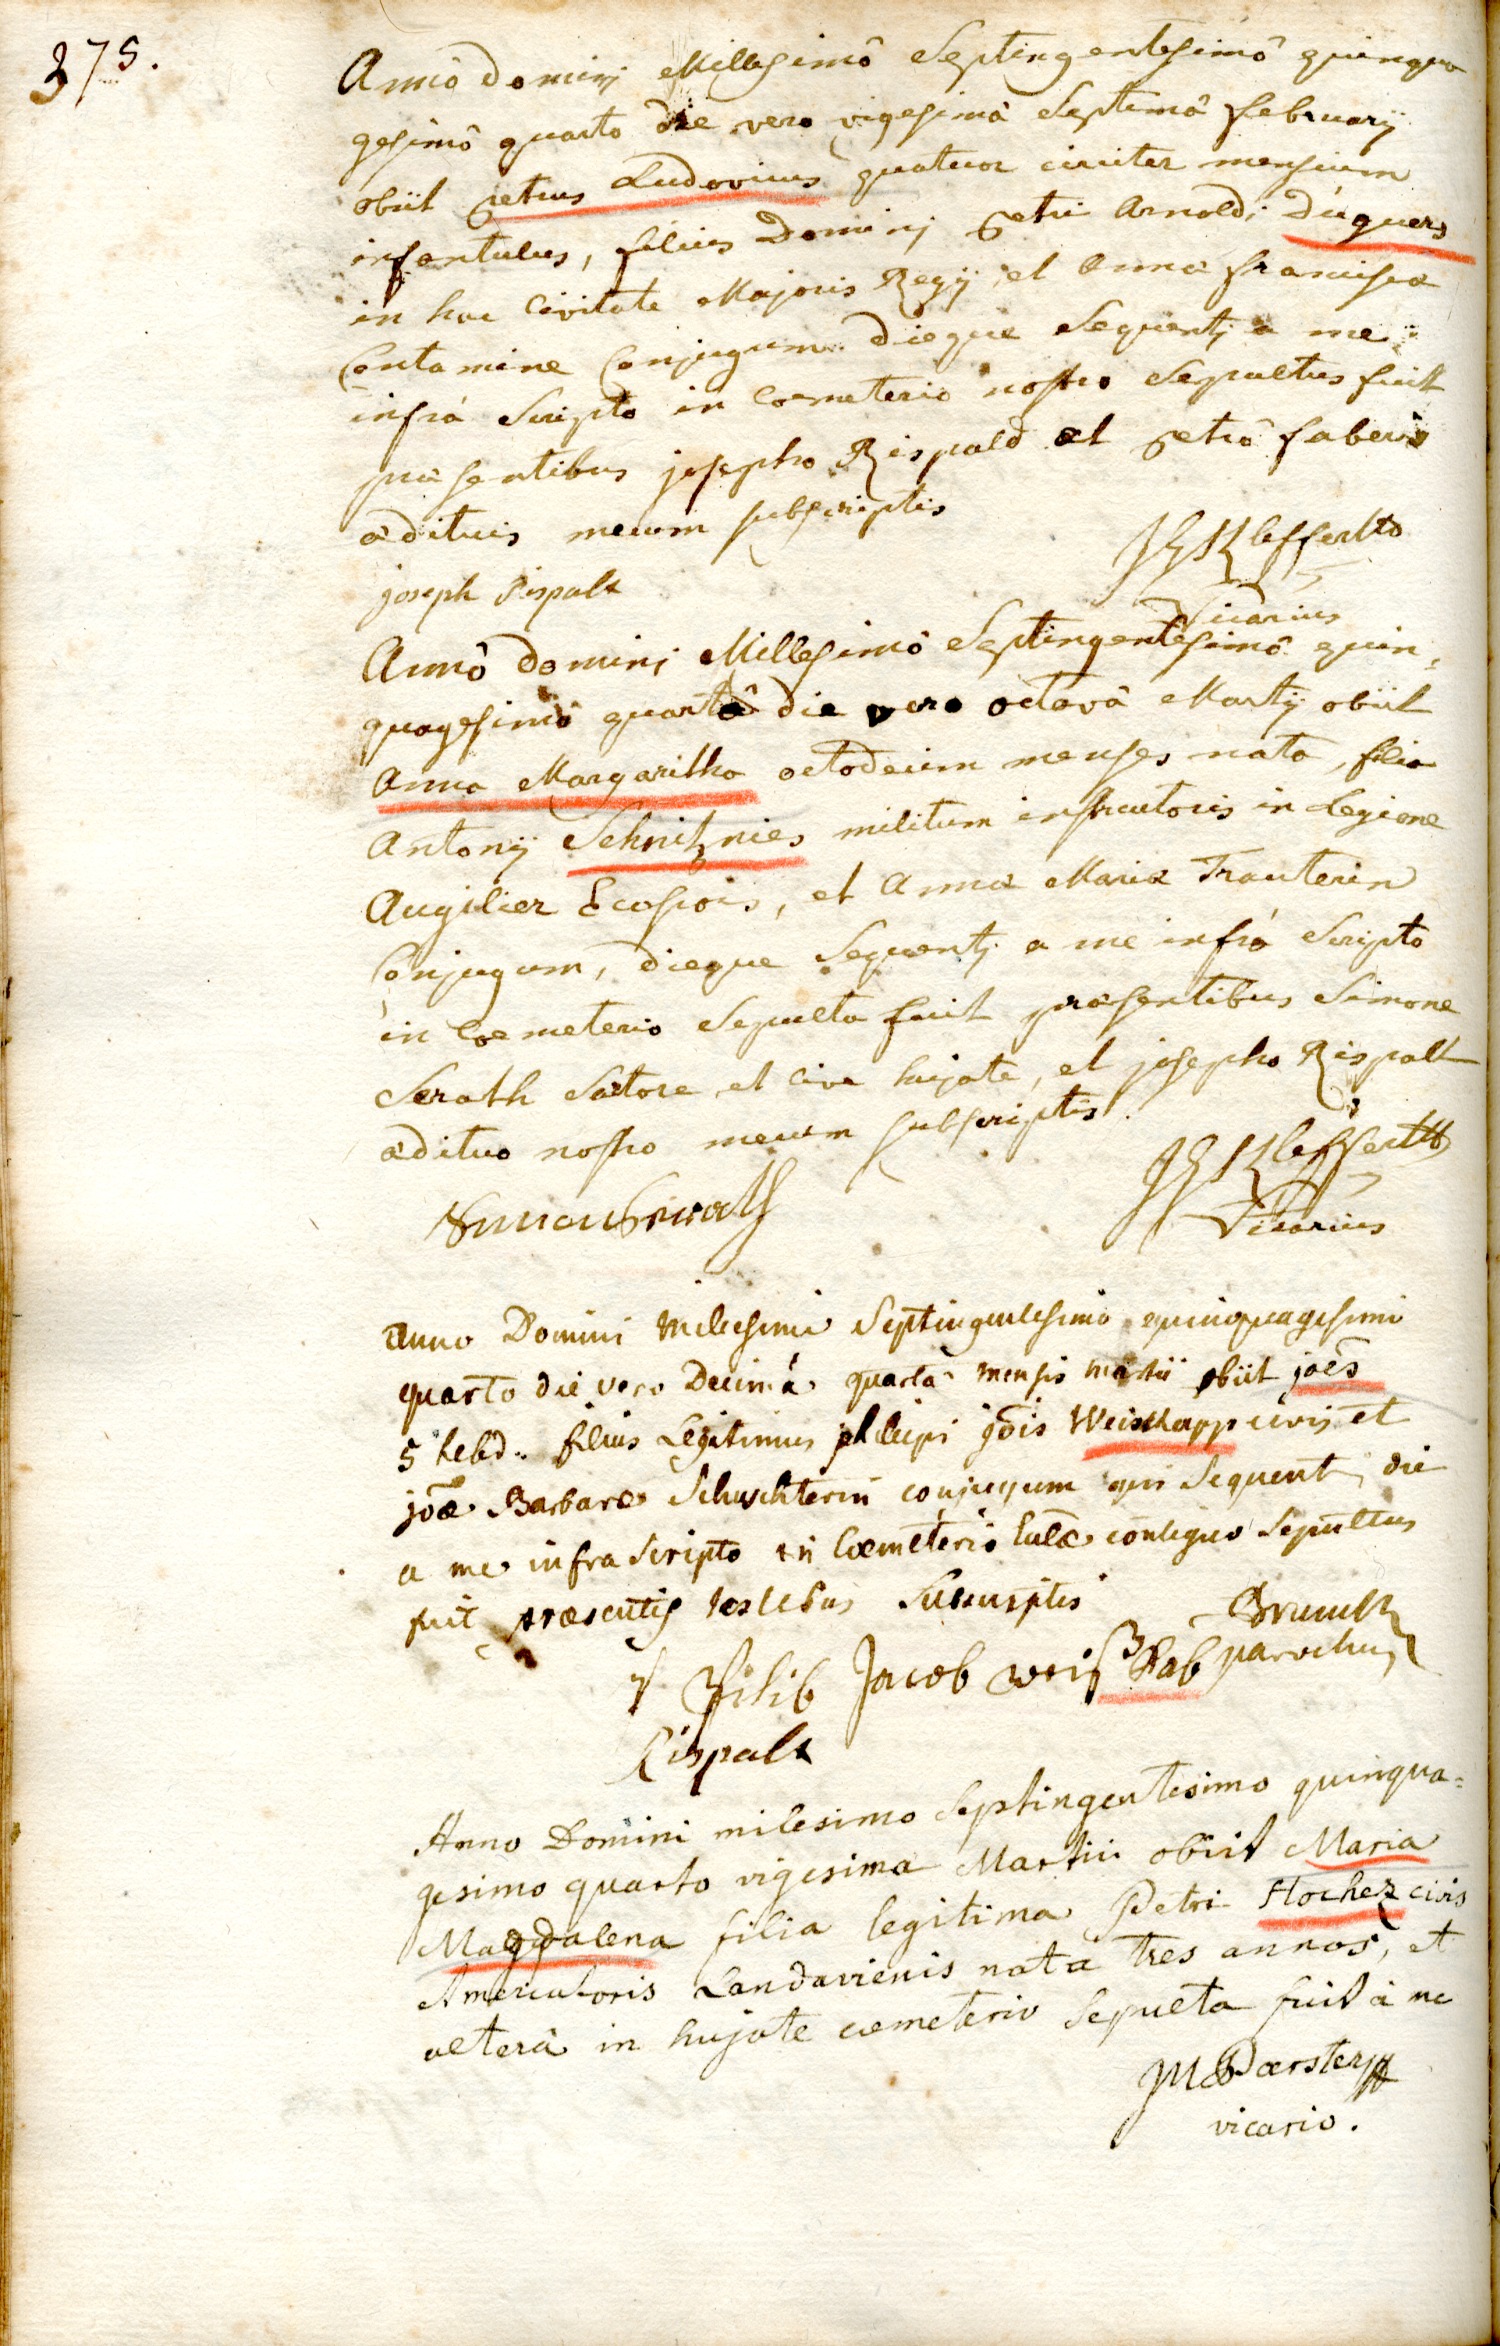 375.
Annô dominj Millesimô Septingentesimô quinqua
gesimô quarto die vero vigesimâ Septimâ februarij
obiit petrus Ludovicus quatuor circiter mensium
infantulus, filius Dominj petri Arnoldi Duquers
in hac Civitate Majoris Regij, et Annæ franciscæ
Contamine Conjugum dieque sequentj a me
infrà Scripto in Coemeterio nostro Sepultus fuit
præsentibus josepho Rispald et petrô faberi
ædituis mecum subscriptis
joseph Rispalt
Vicarius
Annô dominj Millesimô Septingentesimô quin,
quagesimô quartô die vero octavâ Martij obiit
Anna Margaritha octodecim menses nata, filia
Antonij Schnitznies militum instructoris in Legione
Augilier Ecossois, et Annæ Mariæ Trauterin
Conjugum, dieque Sequentj a me infrà Scripto
in Coemeterio Sepulta fuit præsentibus Simone
Serath Satore et cive hujate, et josepho Rispalt
ædituo nostro mecum subscriptis.
Vicarius
anno Domini millesimo Septingentesimo quinquagesimo
quarto die vero Decimâ quartâ mensis martii obiit joês
5 hebd. filius Legitimus philipi jois Weiskapp civis et
joæ Barbaræ Schuchterin conjugum qui sequent die
a me infra scripto in Coemeterio contiguo Sepultus
fuit præsentis testibus
parochus
Filib Jacob weißkab
Rispalt
Anno Domini milesimo septingentesimo quinqua=
gesimo quarto vigesima Martii obiit Maria
Magdalena filia legitima Petri Hochez civis
Amercatoris Landavienis nata tres annos, et
alterâ in hujate coemeterio sepulta fuit à me
vicario.